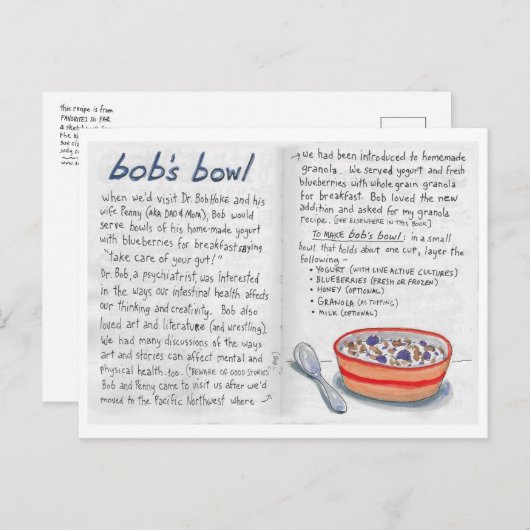 this recipe is from
FAVORITES SO FAR
bob's bowl
when we'd visit Dr. Bob Hoke and his
wife Penny (AKA DAD & MOM), Bob would
serve bowls of his home-made yogurt
with blueberries for breakfast saying
"take care of your gut!"
Dr. Bob, a psychiatrist, was interested
in the ways our intestinal health affects
our thinking and creativity. Bob also
loved art and literature (and wrestling).
We had many discussions of the ways
art and stories can affect mental and
physical health, too. ("BEWARE OF GOOD STORIES" - Bob)
Bob and Penny came to visit us after we'd
moved to the Pacific Northwest where →
→ we had been introduced to homemade
granola. We served yogurt and fresh
blueberries with whole grain granola
for breakfast. Bob loved the new
addition and asked for my granola
recipe. [SEE ELSEWHERE IN THIS BOOK]
TO MAKE bob's bowl: in a small
bowl that holds about one cup, layer the
following ~
• YOGURT (WITH LIVE ACTIVE CULTURES)
• BLUEBERRIES (FRESH OR FROZEN)
• HONEY (OPTIONAL)
• GRANOLA (AS TOPPING)
• MILK (OPTIONAL)